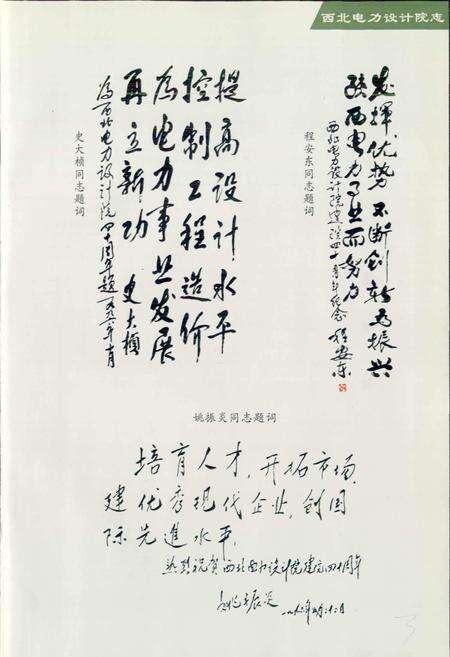 西北电力设计院志
发挥优势 不断创新为振兴
陕西电力事业而努力
西北电力设计院建院四十周年纪念 程安东
程安东同志题词
提高设计水平
控制工程造价
为电力事业发展
再立新功 史大桢
为西北电力设计院四十周年题 一九九六年十月
史大桢同志题词
姚振炎同志题词
培育人才,开拓市场,
建优秀现代企业,创国
际先進水平。
热烈祝贺西北电力设计院建院四十周年
姚振炎